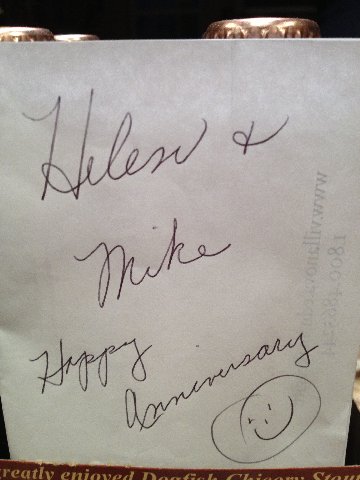 Helen &
Mike
Happy
Anniversary
www.villanov
greatly enjoyed Dogfish Chicory Stou